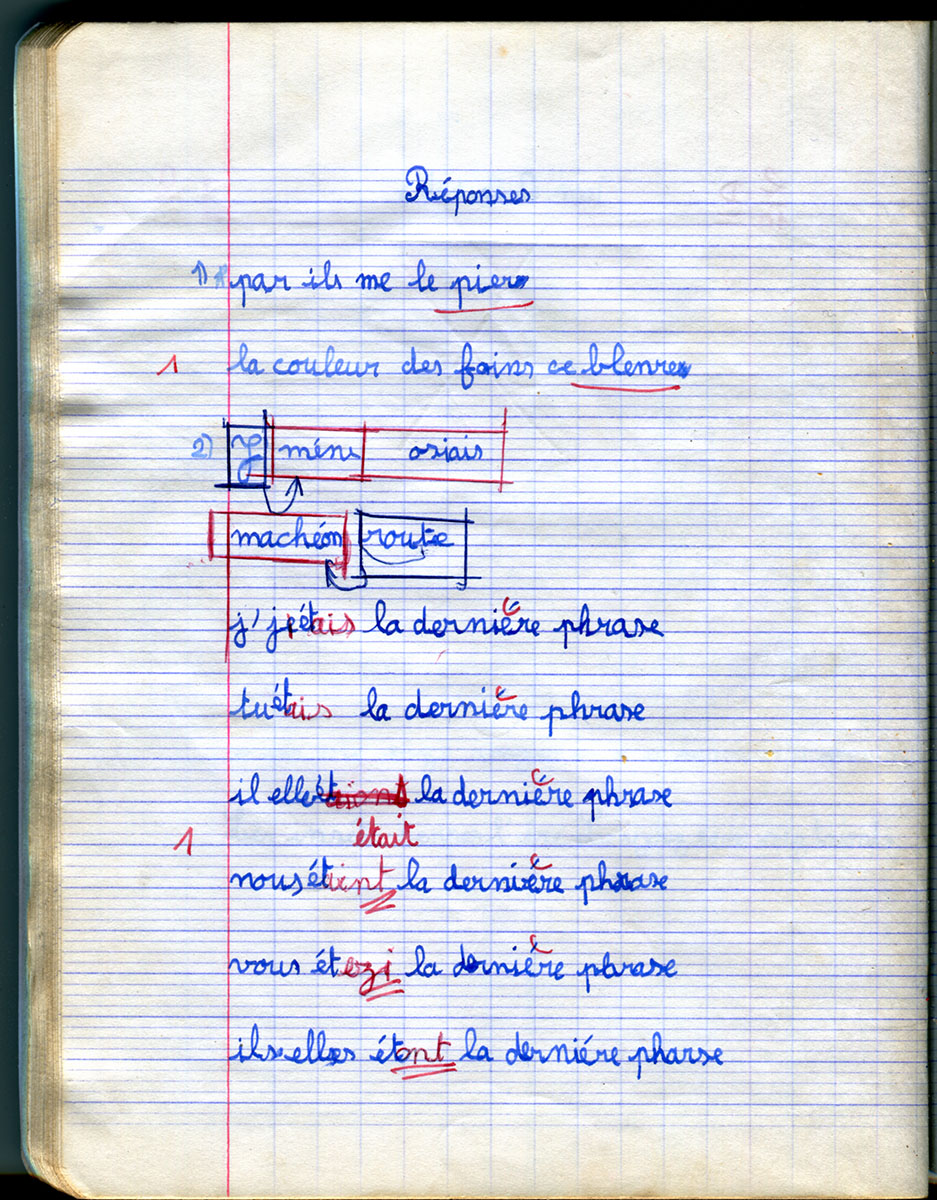 Réponses
1) par ils me le pier
1 la couleur des foins ce blenre
2) J méne osiais
machéon route
j'jétais la derniére phrase
tu étais la derniére phrase
il elle la derniére phrase
était
1
nous étient la derniére phrase
vous étezi la derniére phrase
ils elles étont la derniére pharse